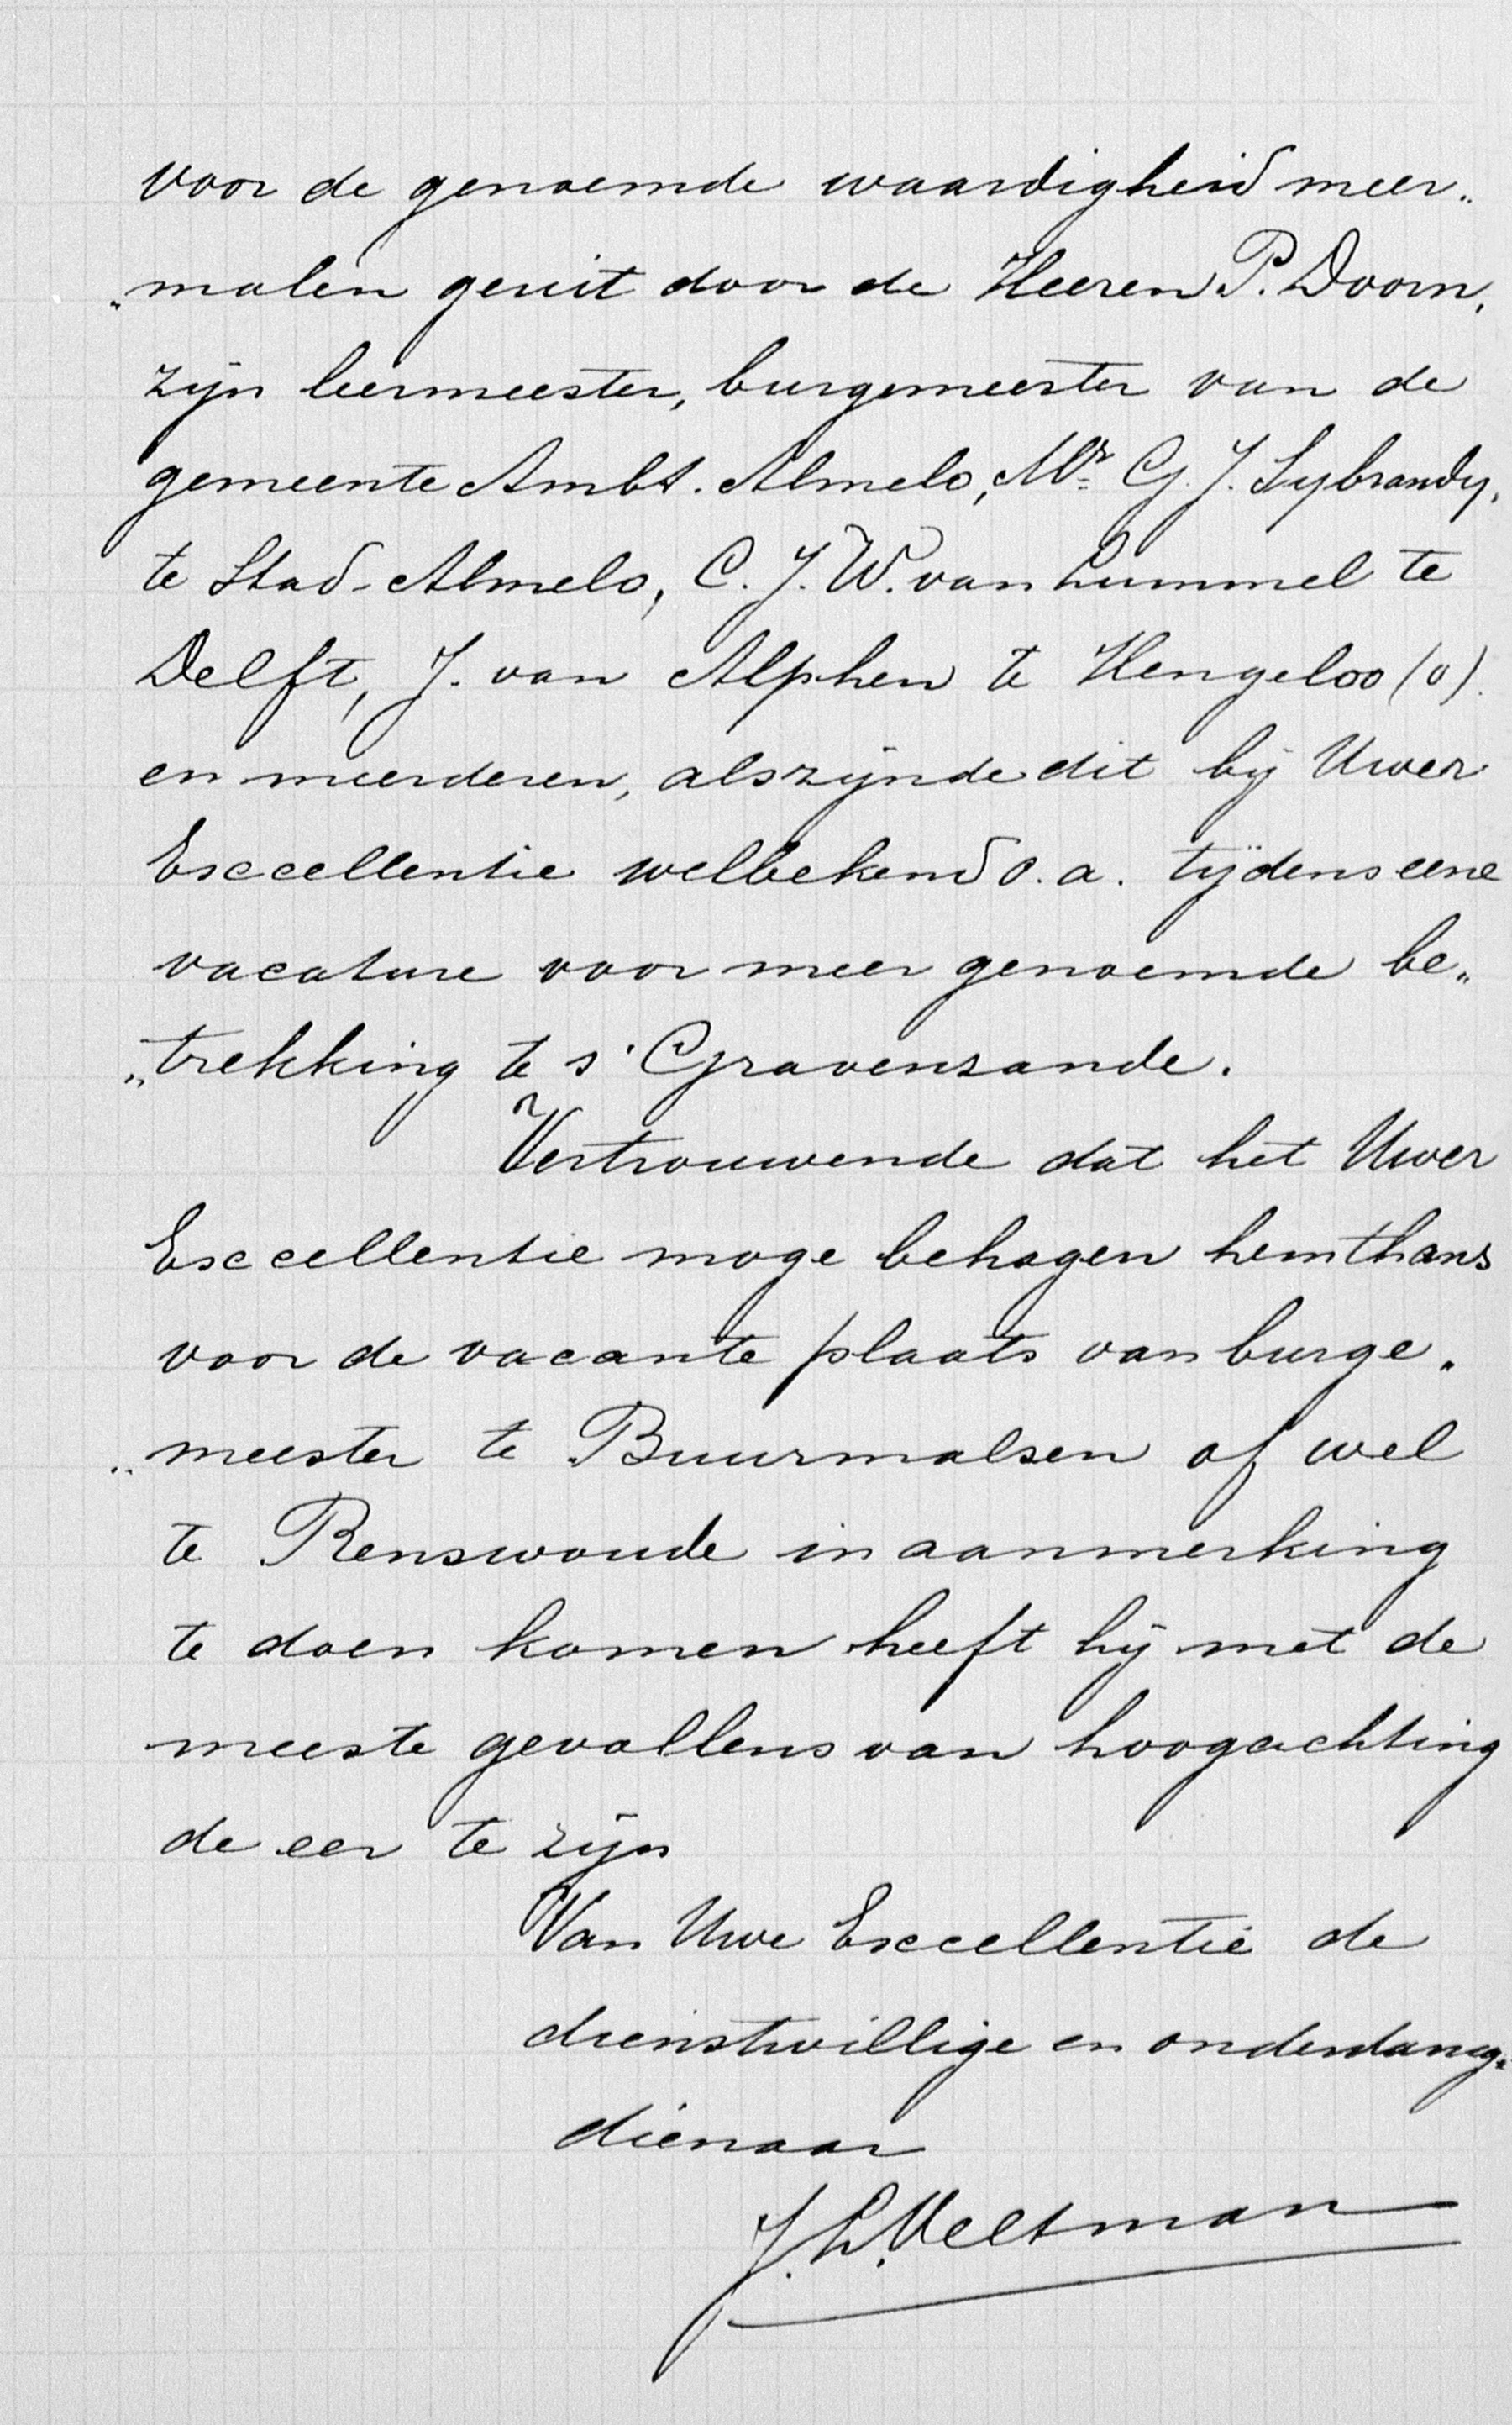 voor de genoemde waardigheid meer„
„malen geuit door de Heeren P. Doorn,
zijn leermeester, burgemeester van de
gemeente Ambt. Almelo, Mr. G. J. Sybrandy,
te Stad-Almelo, C. J. W. van Lummel te
Delft, J. van Alphen te Hengeloo (O).
en meerderen, alszijnde dit bij Uwer
Exccellentie welbekend o. a. tijdens eene
vacature voor meer genoemde be„
„trekking te s' Gravenzande.
Vertrouwende dat het Uwer
Exccellentie moge behagen hem thans
voor de vacante plaats van burge„
„meester te Buurmalsen of wel
te Renswoude in aanmerking
te doen komen heeft hij met de
meeste gevollens van hoogachting
de eer te zijn
Van Uwe Exccellentie de
dienstwillige en onderdang.
dienaar
J. L. Veltman